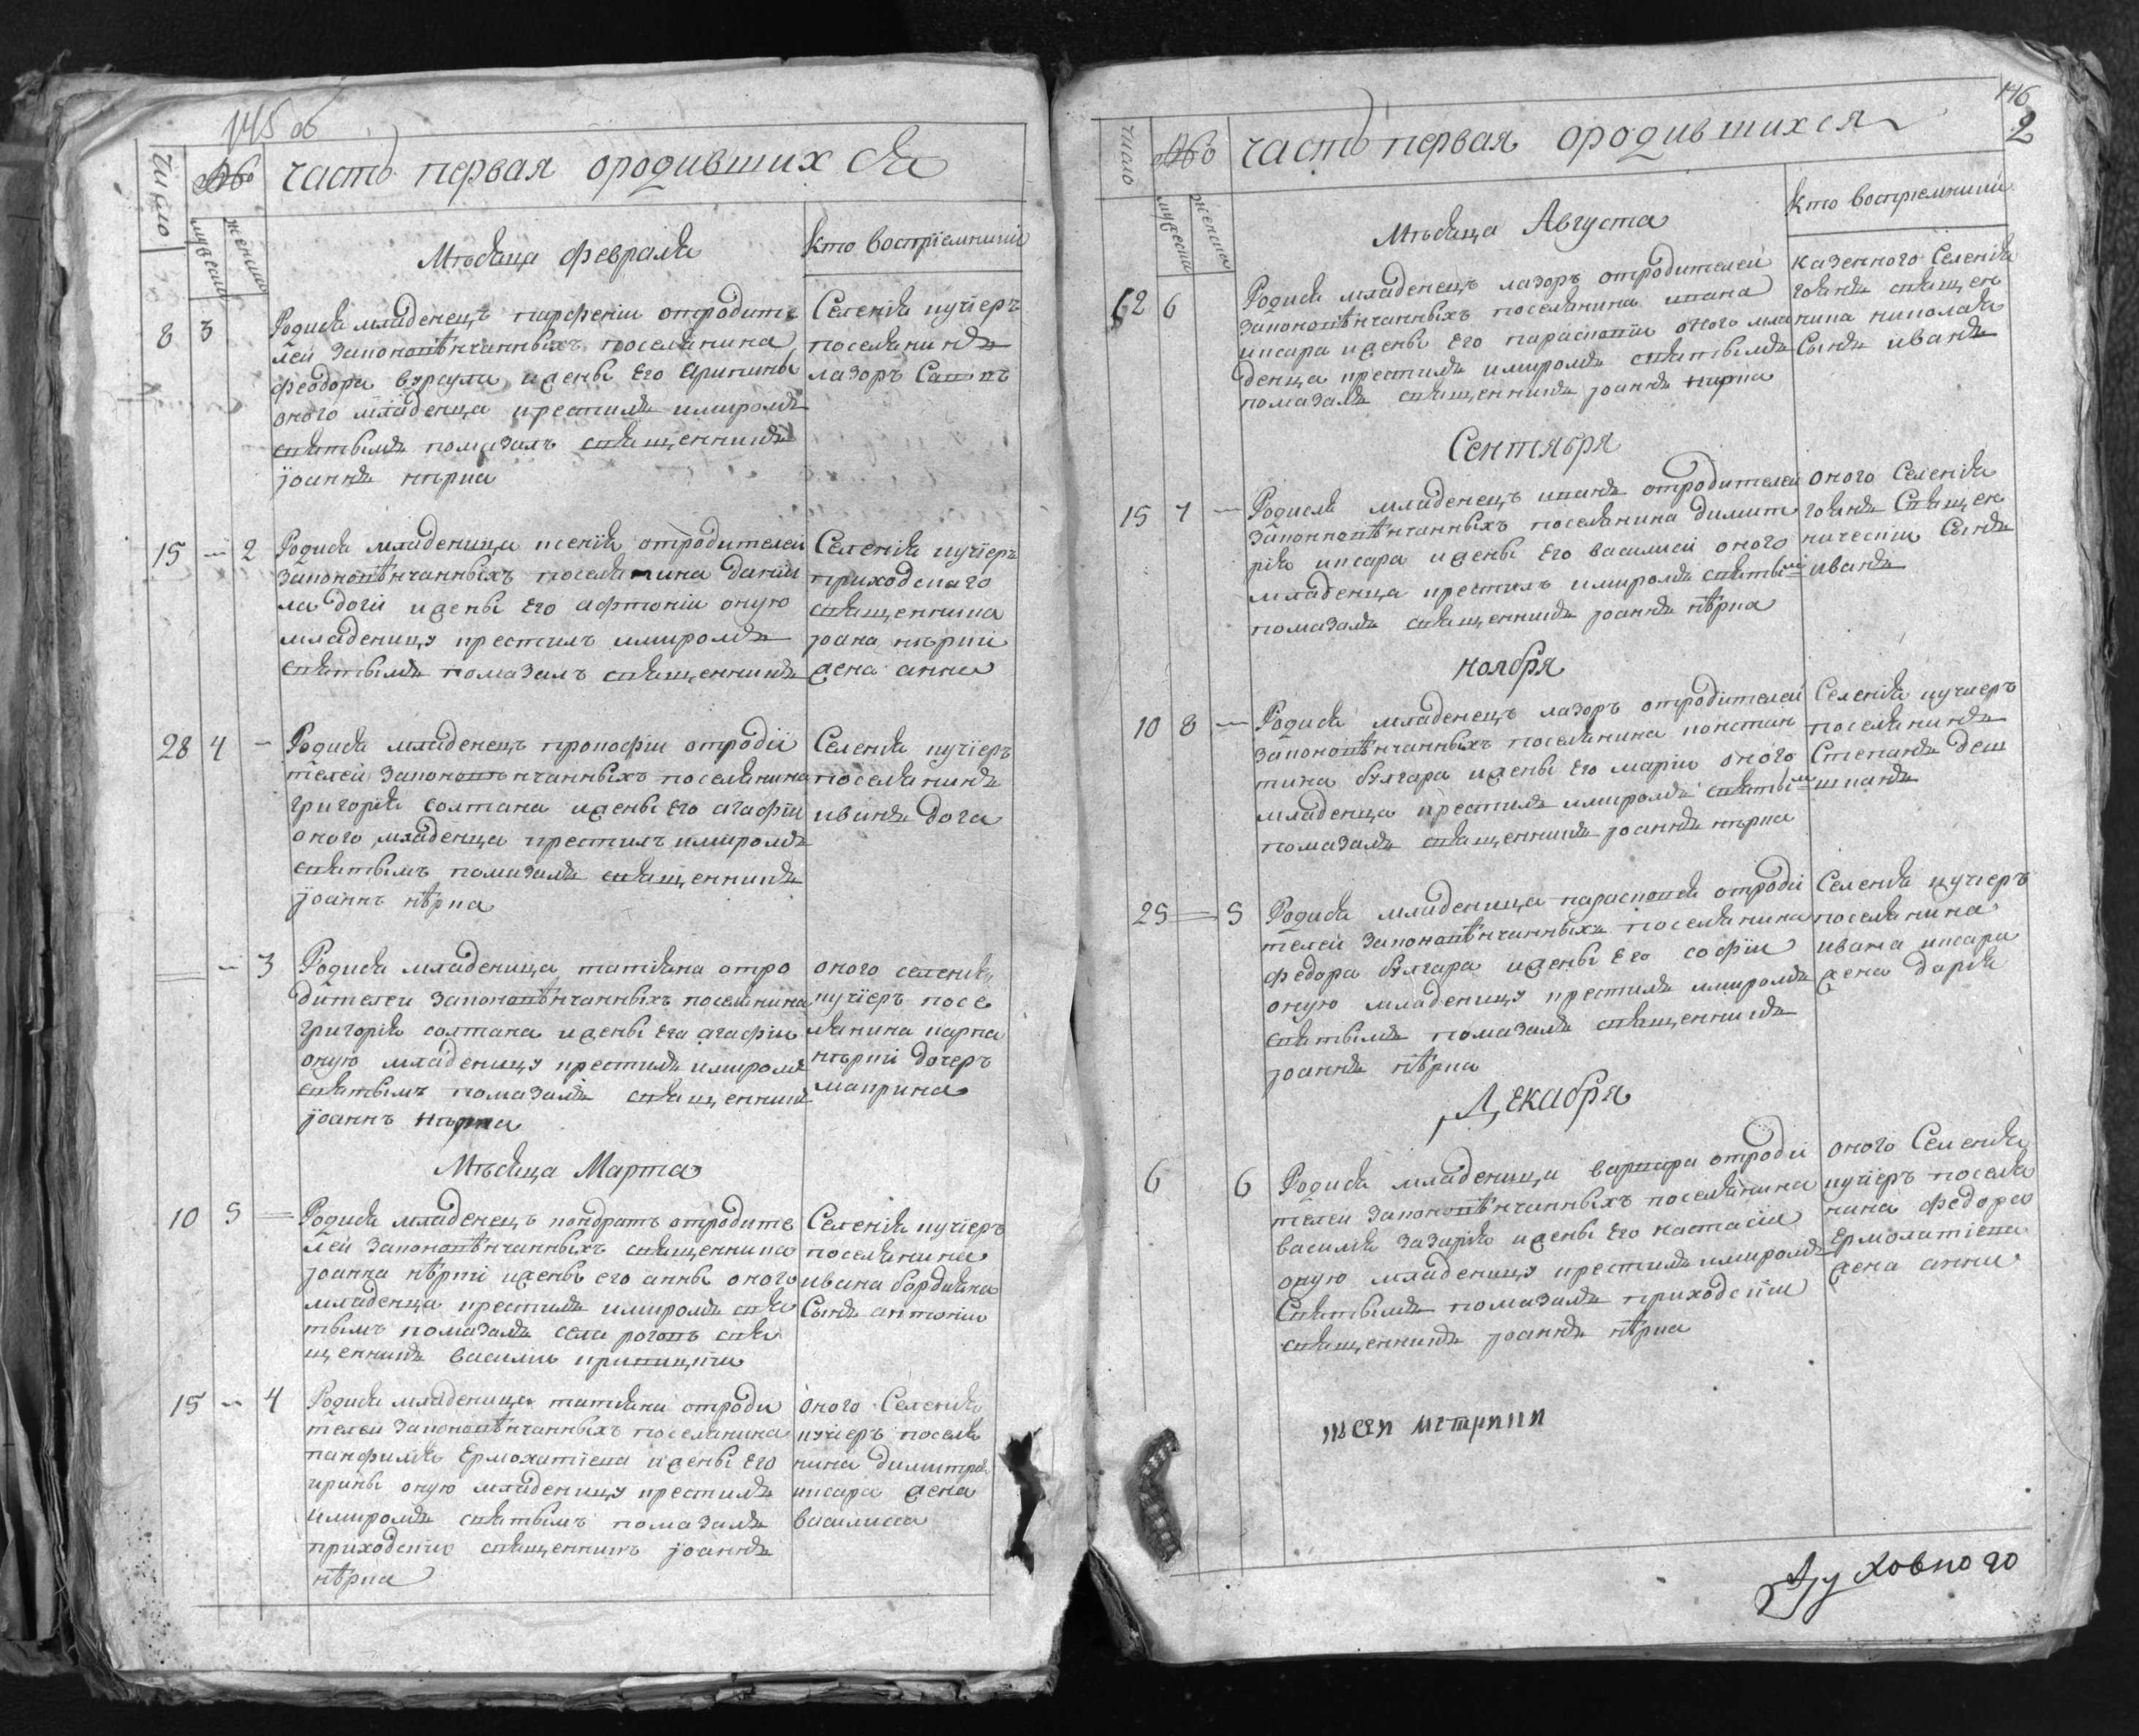 145 об
число
мужеска
женска
часть первая ородившихся
Мѣсяца февраля
кто восприемники
8 3
Родися младенецъ парфенiи отродите
лей законовѣнчанныхъ поселянина
феодора вуракула ижены его Ирины
оного младенца крестилъ имиромъ
святымъ помазалъ священникъ
јоаннъ кѣрка
Селенiя кучiеръ
поселянинъ
лазоръ
15 — 2
Родися младеница ксенiя отродителей
законовѣнчанныхъ поселянина данiи
ла догiи ижены его афтонiи оную
младеницу крестилъ имиромъ
святымъ помазалъ священникъ
Селенiя кучiеръ
приходскаго
священника
јоана кѣркi
жена анна
28 4 —
Родися младенецъ прокофiи отродiи
телей законовѣнчанныхъ поселянина
григорiя солтана ижены его агафiи
оного младенца крестилъ имиромъ
святымъ помазалъ священникъ
јоаннъ кѣрка
Селенiя кучiеръ
поселянинъ
иванъ дога
— 3
Родися младеница татiяна отро
дителей законовѣнчанныхъ поселянина
григорiя солтана ижены его агафiи
оную младеницу крестилъ имиромъ
святымъ помазалъ священникъ
јоаннъ кѣрка
оного селенiя
кучiеръ посе
лянина карпа
кѣркi дочеръ
маприна
Мѣсяца Марта
10 5
Родися младенецъ кондратъ отродите
лей законовѣнчанныхъ священника
јоанна кѣркi ижены его анны оного
младенца крестилъ имиромъ свя
тымъ помазалъ села роговъ свя
щенникъ василiи
Селенiя кучiеръ
поселянина
ивана бордияна
Сынъ антонiи
15 — 4
Родися младеница татiяна отроди
телей законовѣнчанныхъ поселянина
панфилiя Ермолатiева ижены его
ирины оную младеницу крестилъ
имиромъ святымъ помазалъ
приходскiи священникъ јоаннъ
кѣрка
оного Селенiя
кучiеръ поселя
нина димитрiя
кысара жена
василиса
146
2
число
мужеска
женска
часть первая ородившихся
Мѣсяца Августа
кто восприемники
62 6
Родися младенецъ лазоръ отродителей
законовѣнчанныхъ поселянина ивана
кысара ижены его параскевiи оного мла
денца крестилъ имиромъ святымъ
помазалъ священникъ јоаннъ кирка
казенного Селенiя
гоянъ священ
ника николая
Сынъ иванъ
Сентября
15 7 —
Родися младенецъ иванъ отродителей
законновѣнчанныхъ поселянина димит
рiя кысара ижены его василисы оного
младенца крестилъ имиромъ святымъ
помазалъ священникъ јоаннъ кѣрка
оного Селенiя
гоянъ Священ
Сынъ
иванъ
ноября
10 8 —
Родися младенецъ лазоръ отродителей
законовѣнчанныхъ поселянина констан
тина булгара ижены его марiи оного
младенца крестилъ имиромъ святымъ
помазалъ священникъ јоаннъ кѣрка
Селенiя кучиеръ
поселянинъ
Степанъ
25 5
Родися младеница параскевiя отродi
телей законовѣнчанныхъ поселянина
федора булгара ижены его софiи
оную младеницу крестилъ имиромъ
святымъ помазалъ священникъ
јоаннъ кѣрка
Селенiя кучiеръ
поселянина
ивана кысара
жена дарiя
Декабря
6 6
Родися младеница варвара отроди
телей законовѣнчанныхъ поселянина
василiя захарiя ижены его настасiи
оную младеницу крестилъ имиромъ
Святымъ помазалъ приходскiи
священникъ јоаннъ кѣрка
оного Селенiя
кучiеръ поселя
нина федора
Ермолатiева
жена анна
Духовного